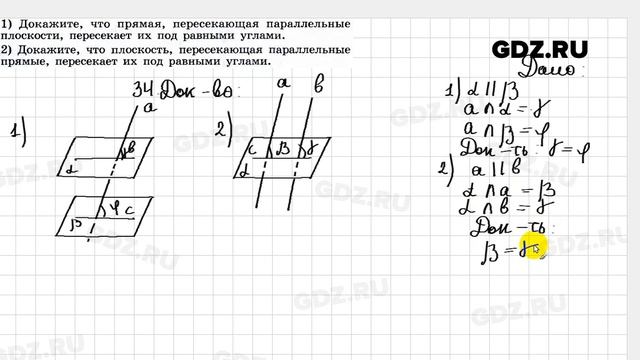 1) Докажите, что прямая, пересекающая параллельные
плоскости, пересекает их под равными углами.
2) Докажите, что плоскость, пересекающая параллельные
прямые, пересекает их под равными углами.
GDZ.RU
Дано:
34 Док-во:
1)
a
b
α
φ c
β
2)
a b
c β γ
α
1) α || β
a ∩ α = γ
a ∩ β = φ
Док-ть: γ = φ
2) a || b
α ∩ a = β
α ∩ b = γ
Док-ть:
β = γ
GDZ.RU
GDZ.RU
GDZ.RU